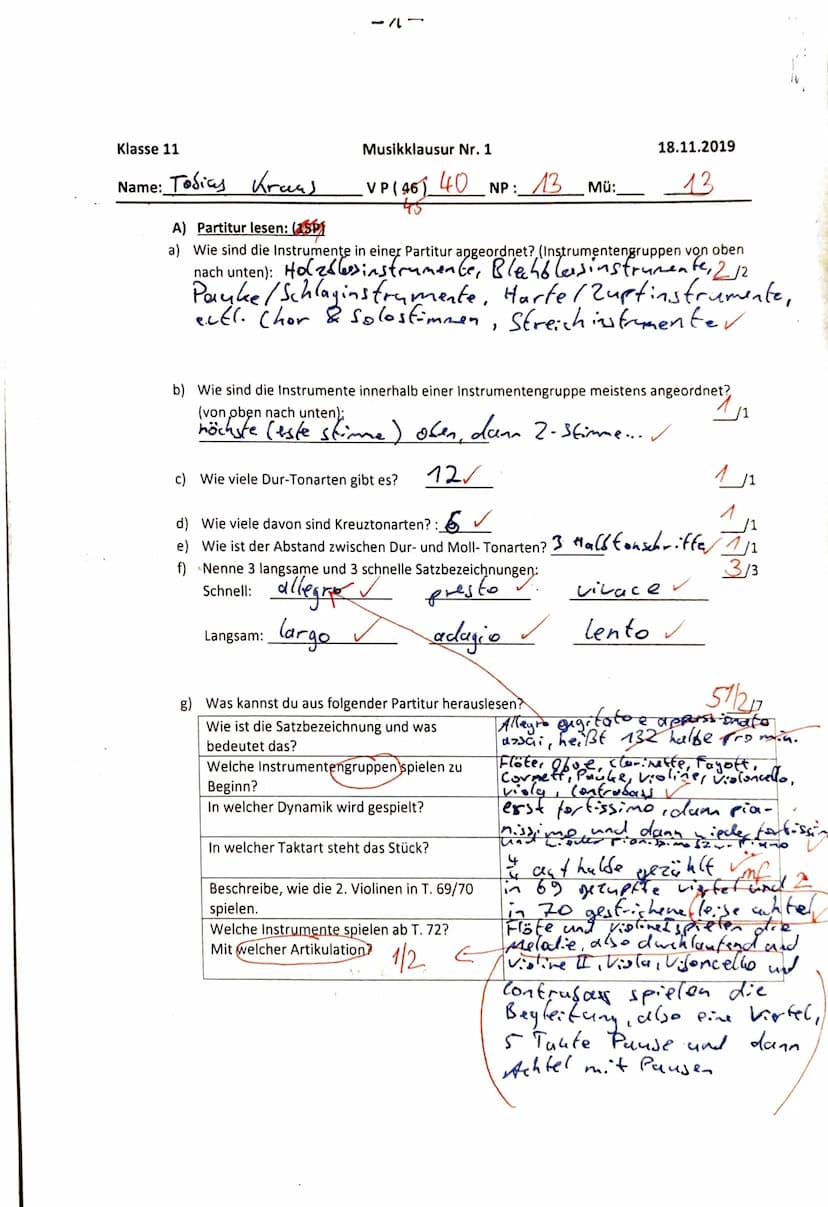 Klasse 11 Musikklausur Nr. 1 18.11.2019
Name: Tobias Kraus VP (46) 40 NP: 13 Mü: 13
45
A) Partitur lesen: (15P)
a) Wie sind die Instrumente in einer Partitur angeordnet? (Instrumentengruppen von oben
nach unten): Holzblasinstrumente, Blechblasinstrumente, 2 /2
Pauke/Schlaginstrumente, Harfe/Zupfinstrumente,
evtl. Chor & Solostimmen, Streichinstrumente ✓
b) Wie sind die Instrumente innerhalb einer Instrumentengruppe meistens angeordnet?
(von oben nach unten): 1 /1
höchste (erste stimme) oben, dann 2-Stimme... ✓
c) Wie viele Dur-Tonarten gibt es? 12 ✓ 1 /1
d) Wie viele davon sind Kreuztonarten? : 6 ✓ 1 /1
e) Wie ist der Abstand zwischen Dur- und Moll- Tonarten? 3 Halbtonschritte ✓ 1 /1
f) Nenne 3 langsame und 3 schnelle Satzbezeichnungen: 3 /3
Schnell: allegro ✓ presto ✓ vivace ✓
Langsam: largo ✓ adagio ✓ lento ✓
g) Was kannst du aus folgender Partitur herauslesen? 5 1/2 /7
Wie ist die Satzbezeichnung und was
bedeutet das?
Allegro engitato e appassionato
assai, heißt 132 halbe pro min.
Welche Instrumentengruppen spielen zu
Beginn?
Flöte, Oboe, Clarinette, Fagott,
Cornett, Pauke, Violine, Violoncello,
Viola, Contrabass ✓
In welcher Dynamik wird gespielt?
erst fortissimo, dann pia-
nissimo und dann wieder fortissim
und wieder Pianissimo
In welcher Taktart steht das Stück?
4/4 auf halbe gezählt ✓
mf
Beschreibe, wie die 2. Violinen in T. 69/70
spielen.
in 69 gezupfte viertel und 2
in 70 gestrichene leise achtel ✓
Welche Instrumente spielen ab T. 72?
Mit welcher Artikulation? 1/2
Flöte und Violine I spielen die
Melodie, also durchlaufend und
Violine II, Viola, Violoncello und
Contrabass spielen die
Begleitung, also eine Viertel,
5 Takte Pause und dann
Achtel mit Pausen